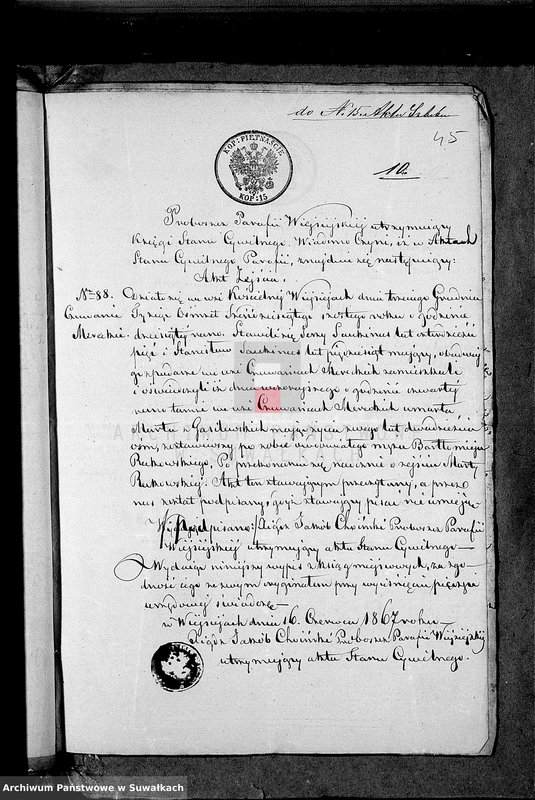 do N. 15. Aktu Szlubu
45
KOP: PIĘTNAŚCIE
KOP: 15
10.
Proboszcz Parafii Wiejsiejskiéj utrzymujący
Księgi Stanu Cywilnego. Wiadomo Czyni, iż w Aktach
Stanu Cywilnego Parafii, znajduie się następujący:
Akt Zejścia.
No 88.
Czuwanie
Mereckie.
Działo się we wsi Kościelnéj Wiejsiejach dnia trzeciego Grudnia
Tysiąc Ośmset Sześćdziesiątego szóstego roku o godzinie
dziesiątéj rano. Stawili się Jerzy Saukinus lat czterdzieści
pięć i Stanisław Saukinus lat pięćdziesiąt mający, obadway
gospodarze we wsi Czuwaniach Mereckich zamieszkali
i oświadczyli iż dnia wczorajszego o godzinie czwartéj
rano tamże we wsi Czuwaniach Mereckich umarła,
Marta z Gasilewskich mając życia swego lat dwadzieścia
ośm, zostawiwszy po sobie owdowiałego męża Bartłomieja
Rutkowskiego. Po przekonaniu się naocznie o zejściu Marty
Rutkowskiéj. Akt ten stawającym przeczytany, a przez
nas został podpisany, gdyż stawający pisać nie umieją
podpisano: Xiądz Jakób Choiński Proboszcz Parafii
Wiejsiejskiéj utrzymujący akta Stanu Cywilnego —
Wydając niniejszy wypis z ksiąg miejscowych, za zgo-
dność jego ze swym oryginałem przy wyciśnięciu pieczęci
urzędowéj świadczę —
w Wiejsiejach dnia 16. Czerwca 1867 roku —
Xiądz Jakób Chwiński Proboszcz Parafii Wiejsiejskiéj
utrzymujący akta Stanu Cywilnego.
Archiwum Państwowe w Suwałkach